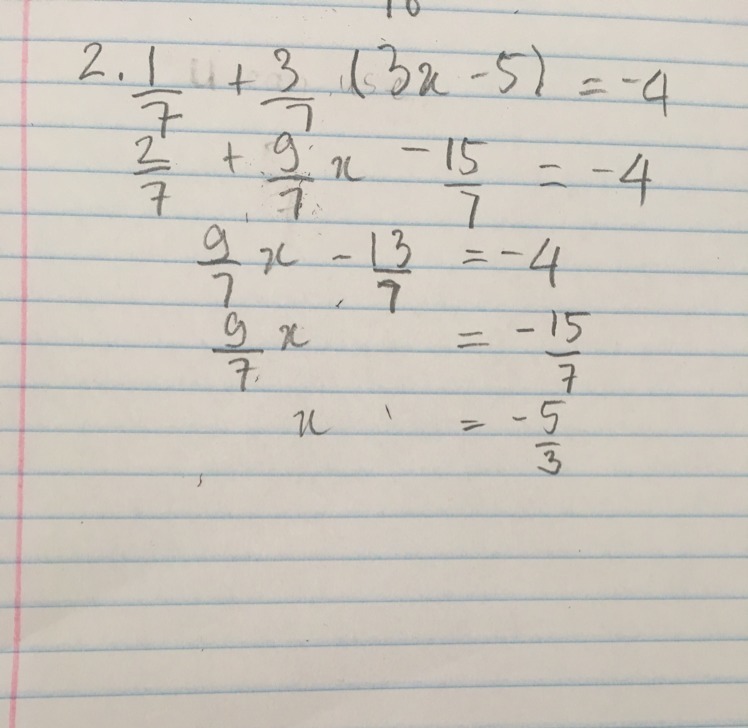 2. 1/7 + 3/7 (3x - 5) = -4
2/7 + 9/7 x - 15/7 = -4
9/7 x - 13/7 = -4
9/7 x = -15/7
x = -5/3